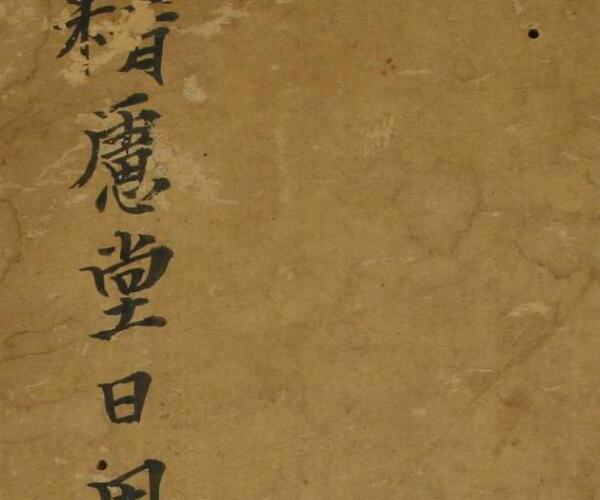 精慮堂日用